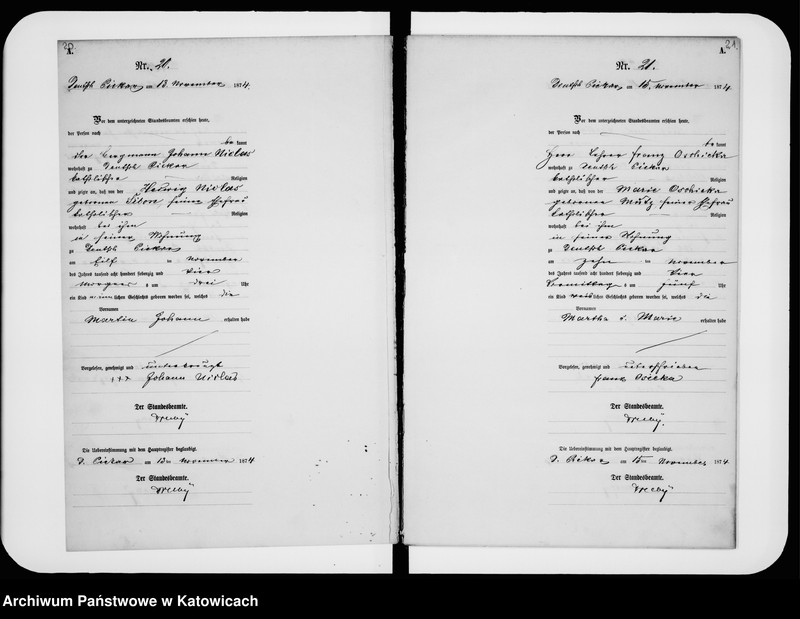 A.
Nr. 20.
Deutsch Piekar am 13. November 1874.
Vor dem unterzeichneten Standesbeamten erschien heute,
der Person nach
bekannt
der Bergmann Johann Niclas
wohnhaft zu Deutsch Piekar
katholischer Religion
und zeigte an, daß von der Hedwig Niclas
geborenen seiner Ehefrau
katholischer Religion
wohnhaft bei ihm
in seiner Wohnung
zu Deutsch Piekar
am elf ten November
des Jahres tausend acht hundert siebenzig und vier
Morgens um drei Uhr
ein Kind männlichen Geschlechts geboren worden sei, welches die
Vornamen
Martin Johann erhalten habe
Vorgelesen, genehmigt und unterkreuzt
+++ Johann Niclas
Der Standesbeamte.
Die Uebereinstimmung mit dem Hauptregister beglaubigt.
D. Piekar am 13ten November 1874
Der Standesbeamte.
A. 21.
Nr. 21.
Deutsch Piekar am 15. November 1874.
Vor dem unterzeichneten Standesbeamten erschien heute,
der Person nach
bekannt
Herr Lehrer Franz Oschicka
wohnhaft zu Deutsch Piekar
katholischer Religion
und zeigte an, daß von der Marie Oschicka
geborenen seiner Ehefrau
katholischer Religion
wohnhaft bei ihm
in seiner Wohnung
zu Deutsch Piekar
am zehn ten November
des Jahres tausend acht hundert siebenzig und vier
Vormittag um fünf Uhr
ein Kind weiblichen Geschlechts geboren worden sei, welches die
Vornamen
Martha Marie erhalten habe
Vorgelesen, genehmigt und unterschrieben
Franz
Der Standesbeamte.
Die Uebereinstimmung mit dem Hauptregister beglaubigt.
D. Piekar am 15ten November 1874
Der Standesbeamte.
Archiwum Państwowe w Katowicach